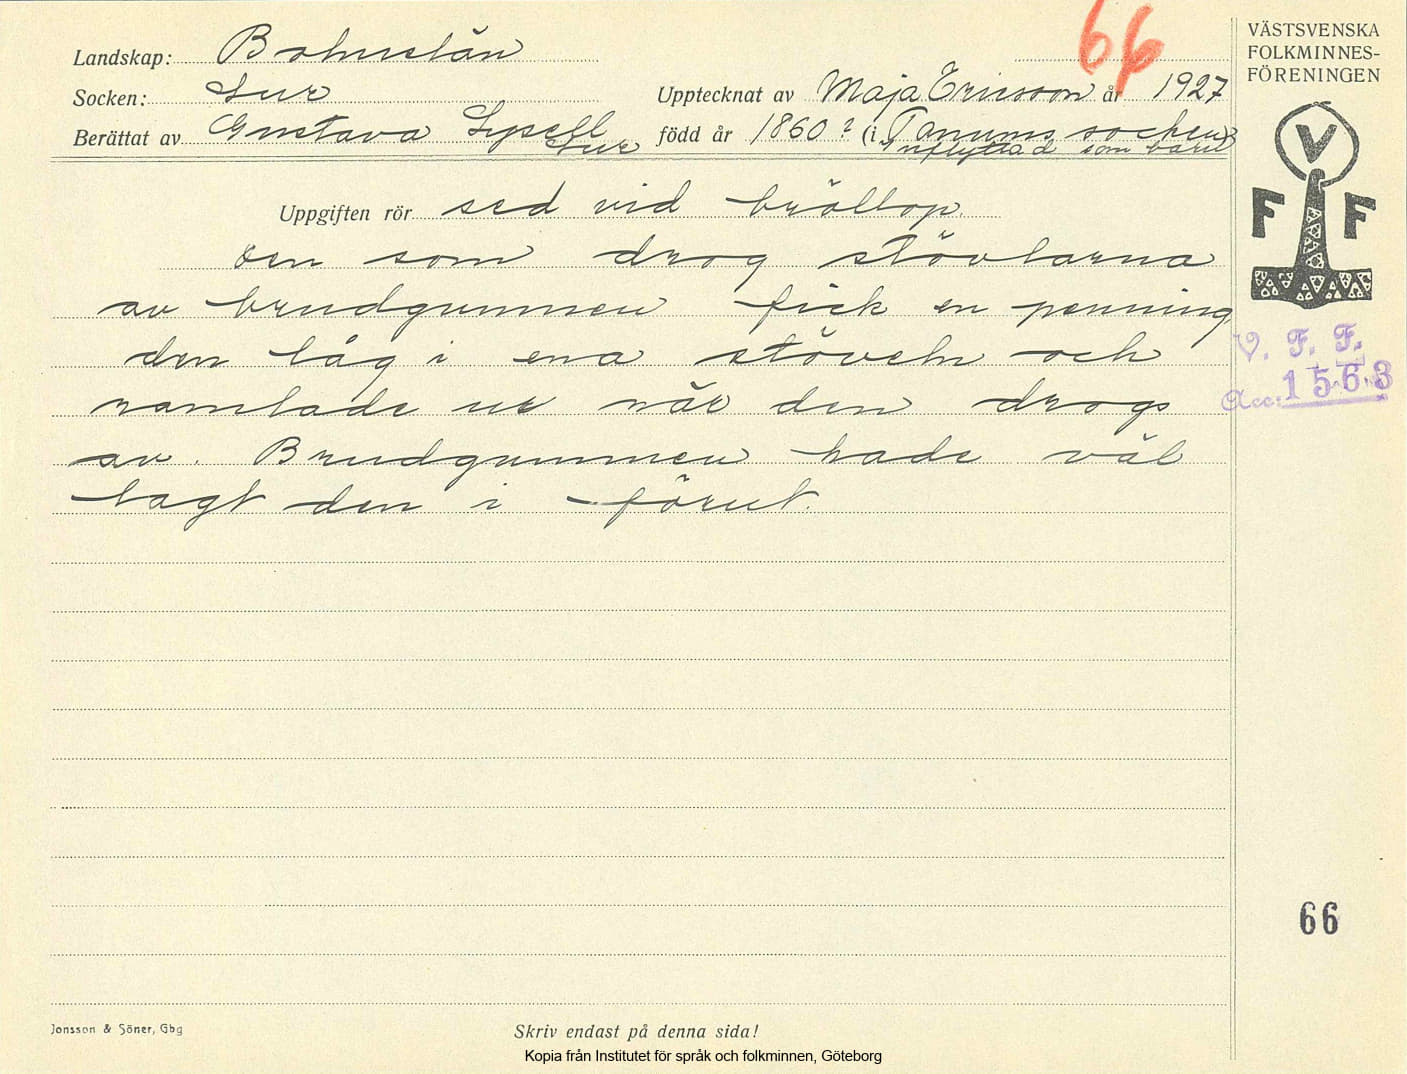 66
Landskap: Bohuslän
VÄSTSVENSKA
FOLKMINNES-
FÖRENINGEN
Socken: Lur
Upptecknat av Maja Ericsson år 1927
Berättat av Gustava Lysell
Lur
född år 1860? (i Tanums socken)
Inflyttad som barn
V
F F
Uppgiften rör sed vid bröllop.
Den som drog stövlarna
av brudgummen fick en penning
den låg i ena stöveln och
ramlade ur när den drogs
av. Brudgummen hade väl
lagt den i förut.
V. F. F.
Acc: 1563
66
Jonsson & Söner, Gbg
Skriv endast på denna sida!
Kopia från Institutet för språk och folkminnen, Göteborg